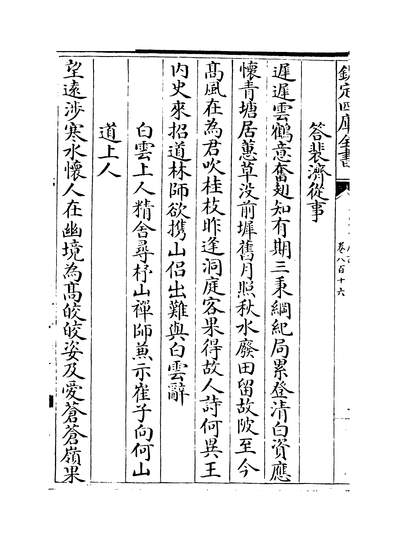 欽定四庫全書
卷八百十六
答裴濟從事
遲遲雲鶴意奮翅知有期三秉綱紀局累登清白資應
懷青塘居蕙草没前墀舊月照秋水廢田留故陂至今
髙風在為君吹桂枝昨逢洞庭客果得故人詩何異王
内史來招道林師欲携山侶出難與白雲辭
白雲上人精舎尋杼山禪師兼示崔子向何山
道上人
望遠涉寒水懷人在幽境為髙皎皎姿及愛蒼蒼嶺果